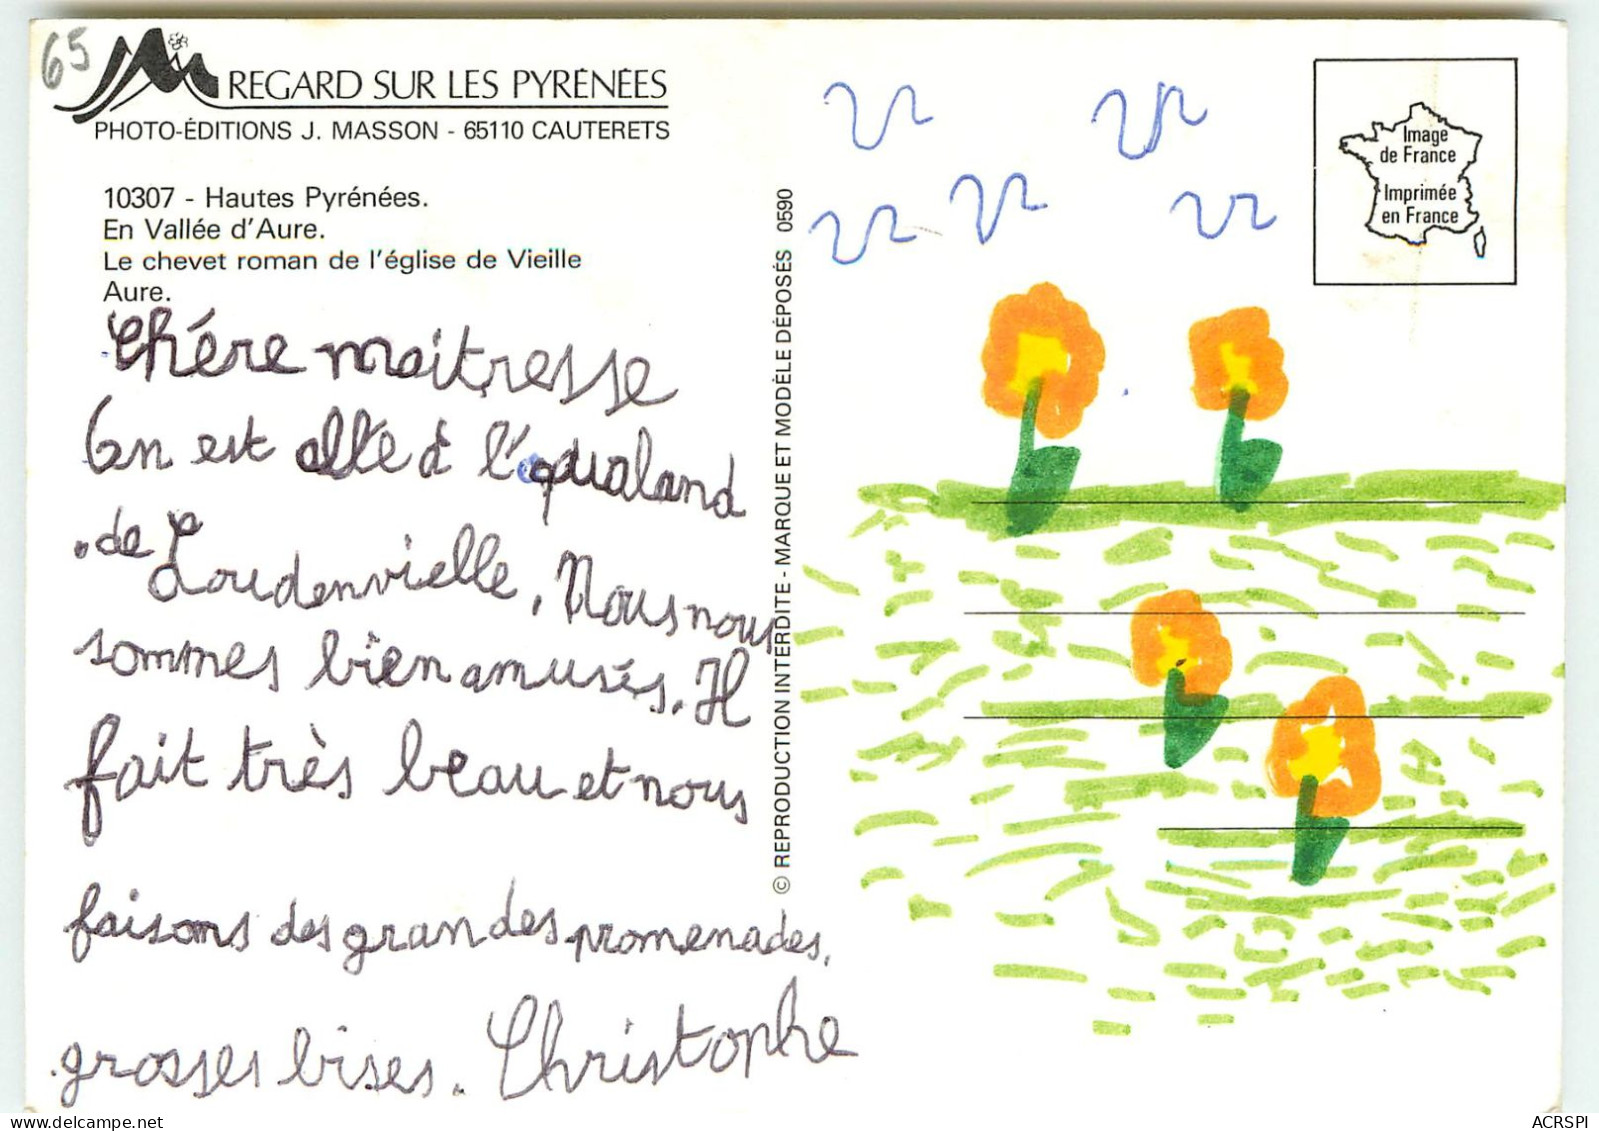 65
REGARD SUR LES PYRÉNÉES
PHOTO-ÉDITIONS J. MASSON - 65110 CAUTERETS
10307 - Hautes Pyrénées.
En Vallée d'Aure.
Le chevet roman de l'église de Vieille
Aure.
Chére maitresse
On est allé à l'aqualand
de Loudenvielle. Nous nous
sommes bien amusés. Il
fait très beau et nous
faisons des grandes promenades.
grosses bises. Christophe
© REPRODUCTION INTERDITE - MARQUE ET MODÈLE DÉPOSÉS 0590
Image
de France
Imprimée
en France
delcampe.net
ACRSPI